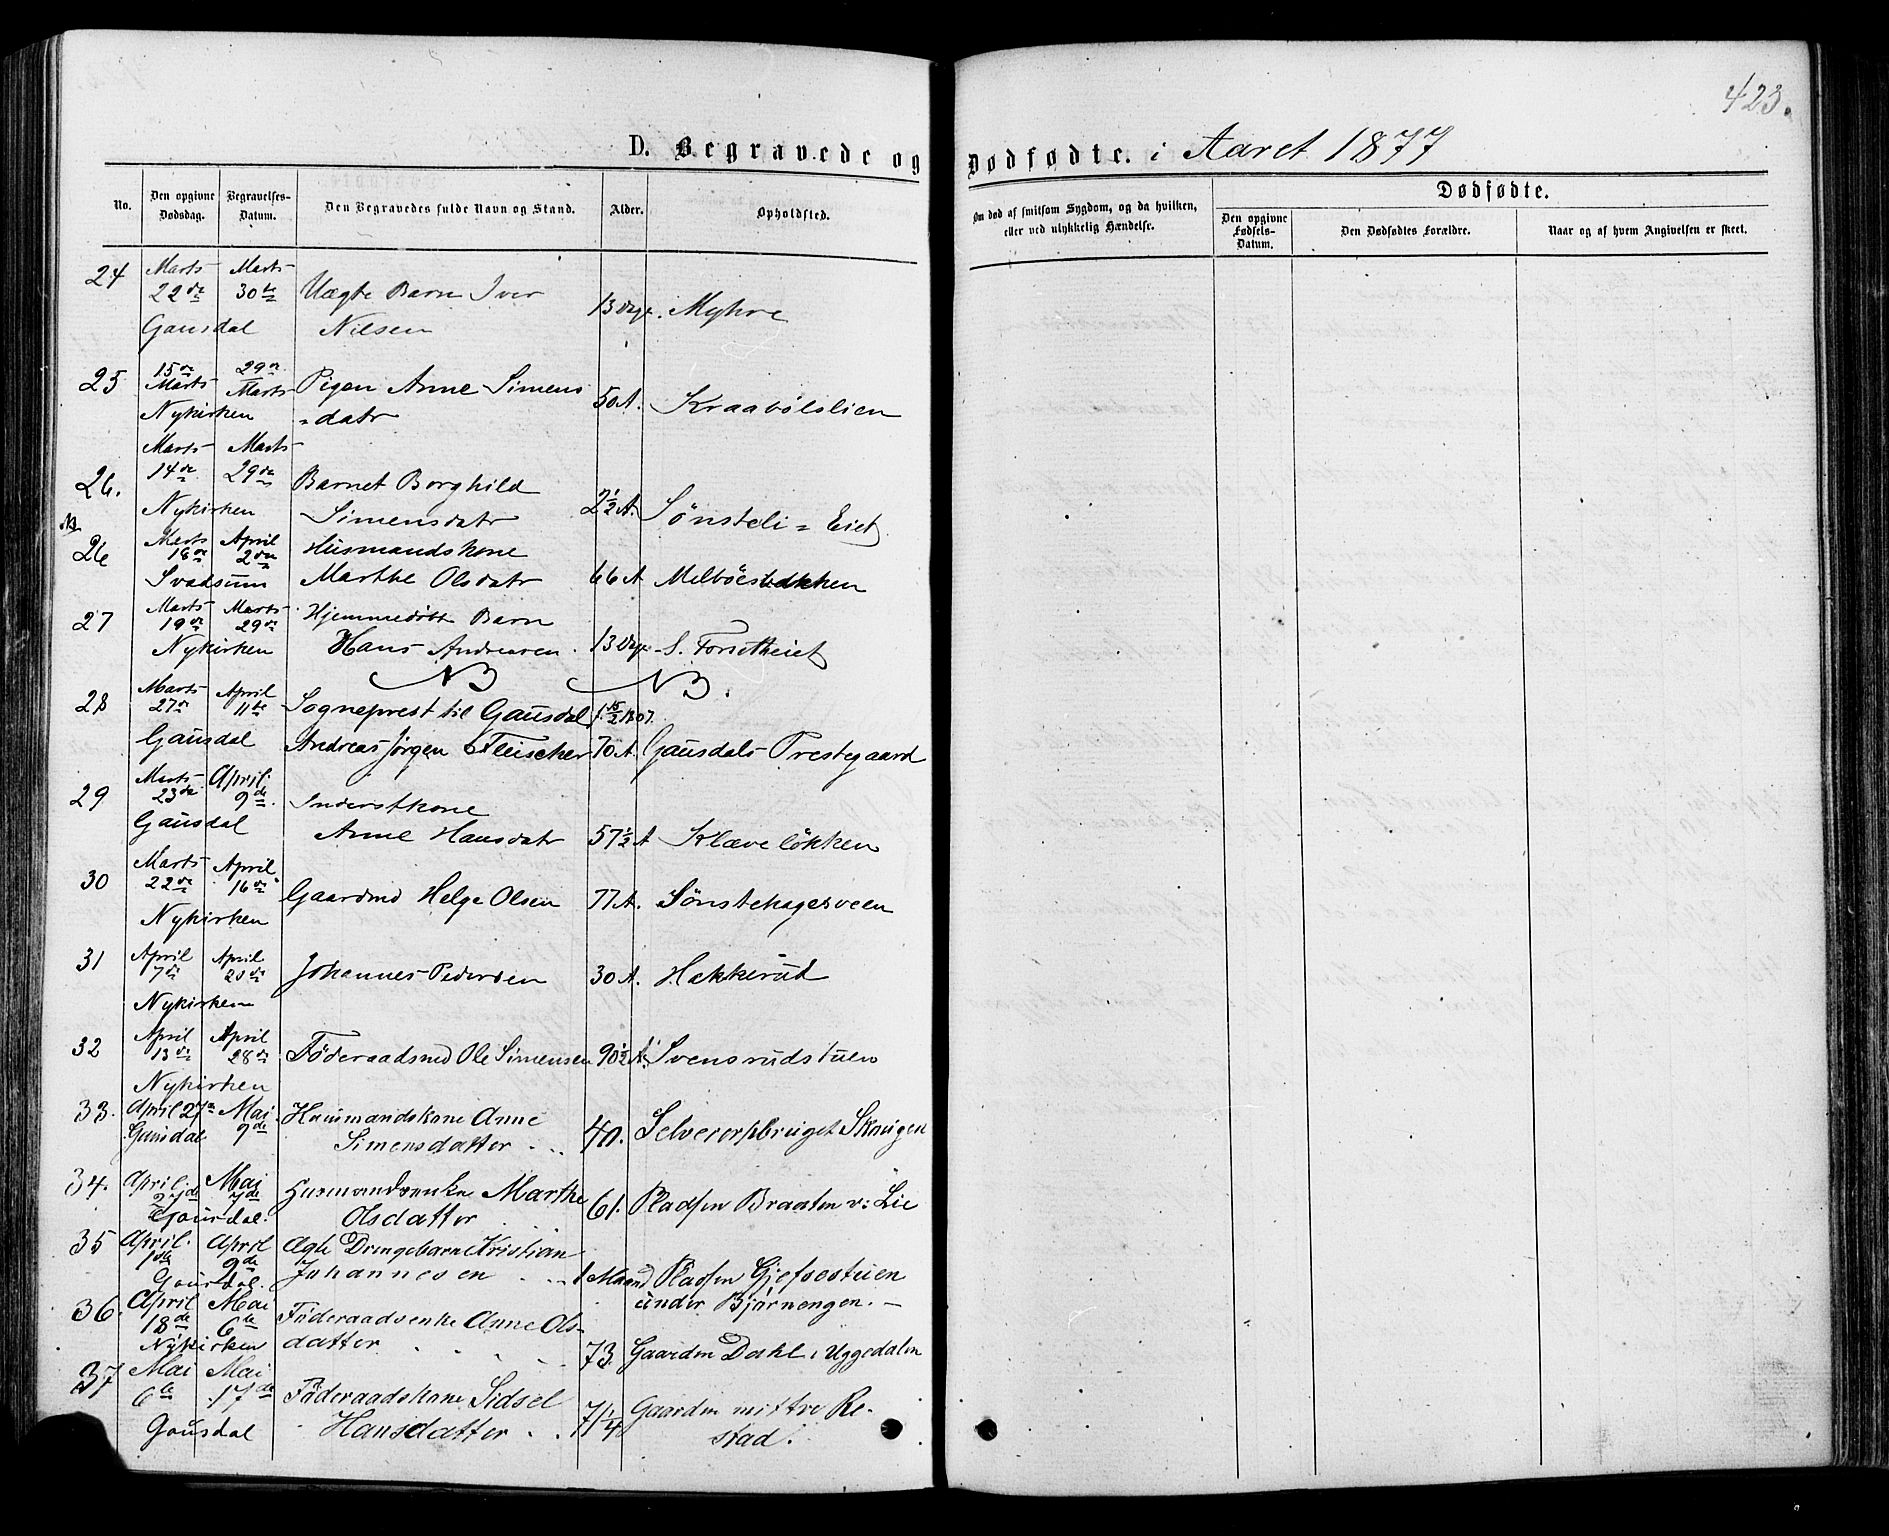 423.
D. Begravede og Dødfødte. i Aaret 1877
No. Den opgivne Dødsdag. Begravelses-Datum. Den Begravedes fulde Navn og Stand. Alder. Opholdsted.
Om død af smitsom Sygdom, og da hvilken, eller ved ulykkelig Hændelse.
Dødfødte.
Den opgivne Fødsels-Datum. Den Dødfødtes Forældre. Naar og af hvem Angivelsen er skeet.
24 Marts 22de Marts 30te Uægte Barn Iver
Gausdal Nilsen 13 Dge. Myhre
25 15de Marts 29de Marts Pigen Anne Simens
Nykirken =datr 50 A. Kraabölslien
26. Marts 14de Marts 29de Barnet Borghild
Nykirken Simensdatr 2½ A. Sønsteli = Eiet
NB
26 Marts 18de April 2den Husmandskone
Svadsum Marthe Olsdatr 66 A Melböesbakken
27 Marts 19de Marts 29de Hjemmedöbt Barn
Nykirken Hans Andreasen. 13 Dge S. Forsetheiet
NB NB.
28 Marts 27de April 11te Sogneprest til Gausdal f. 15/2 1807.
Gausdal Andreas Jørgen Fleischer 70 A. Gausdals Prestegaard
29 Marts 23de April 9de. Inderstkone
Gausdal Anne Hansdatr 57½ A Klæveløkken
30 Marts 22de April 16de Gaardmd Helge Olsen 77 A. Sönstehagesveen
Nykirken
31 April 7de April 20de Johannes Pedersen 30 A. Hakkerud
Nykirken
32 April 13de April 28de Föderaadsmd Ole Simensen 90½ A. Svensrudstuen
Nykirken
33. April 27de Mai 9de Huusmandskone Anne
Gausdal Simensdatter 40. Selveierpbruget Skougen
34. April 27de Mai 7de Husmandsenke Marthe
Gausdal. Olsdatter 61. Pladsen Braaten v: Lie
35 April. 1ste April 9de Ægte Drengebarn Kristian
Gausdal. Johannesen 1 Maand Pladsen Gjefsestuen
under Bjørnengen. –
36. April 18de Mai 6te Föderaadsenke Anne Ols-
Nykirken datter 73. Gaarden Dahl i Uggedalen
37 Mai 6te Mai 17de Föderaadskone Sidsel
Gausdal Hansdatter 71¼ Gaarden mittre Re-
stad.